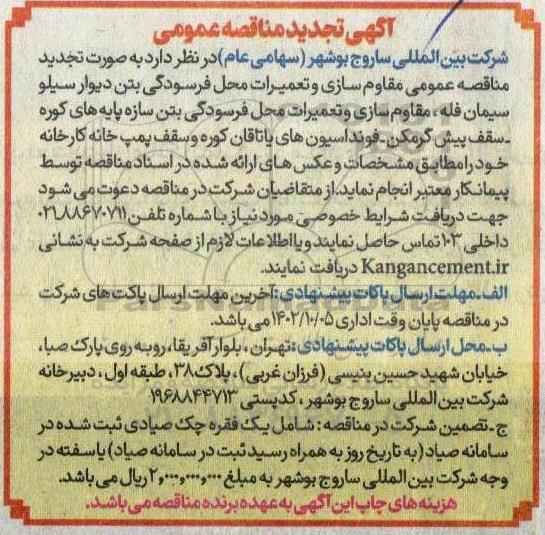 آگهی تجدید مناقصه عمومی
شرکت بین المللی ساروج بوشهر (سهامی عام) در نظر دارد به صورت تجدید
مناقصه عمومی مقاوم سازی و تعمیرات محل فرسودگی بتن دیوار سیلو
سیمان فله ، مقاوم سازی و تعمیرات محل فرسودگی بتن سازه پایه های کوره
-سقف پیش گرمکن-فونداسیون های یاتاقان کوره و سقف پمپ خانه کارخانه
خود را مطابق مشخصات و عکس های ارائه شده در اسناد مناقصه توسط
پیمانکار معتبر انجام نماید. از متقاضیان شرکت در مناقصه دعوت می شود
جهت دریافت شرایط خصوصی مورد نیاز با شماره تلفن ۰۲۱۸۸۶۷۰۷۱۱
داخلی ۱۰۳ تماس حاصل نمایند و یا اطلاعات لازم از صفحه شرکت به نشانی
Kangancement.ir دریافت نمایند.
الف-مهلت ارسال پاکات پیشنهادی: آخرین مهلت ارسال پاکت های شرکت
در مناقصه پایان وقت اداری ۱۴۰۲/۱۰/۰۵ می باشد.
ب-محل ارسال پاکات پیشنهادی: تهران ، بلوار آفریقا، روبه روی پارک صبا،
خیابان شهید حسین بنیسی (فرزان غربی) ، پلاک ۳۸، طبقه اول ، دبیرخانه
شرکت بین المللی ساروج بوشهر ، کدپستی ۱۹۶۸۸۴۴۷۱۳
ج-تضمین شرکت در مناقصه : شامل یک فقره چک صیادی ثبت شده در
سامانه صیاد (به تاریخ روز به همراه رسید ثبت در سامانه صیاد) یا سفته در
وجه شرکت بین المللی ساروج بوشهر به مبلغ ۲,۰۰۰,۰۰۰,۰۰۰ ریال می باشد.
هزینه های چاپ این آگهی به عهده برنده مناقصه می باشد.